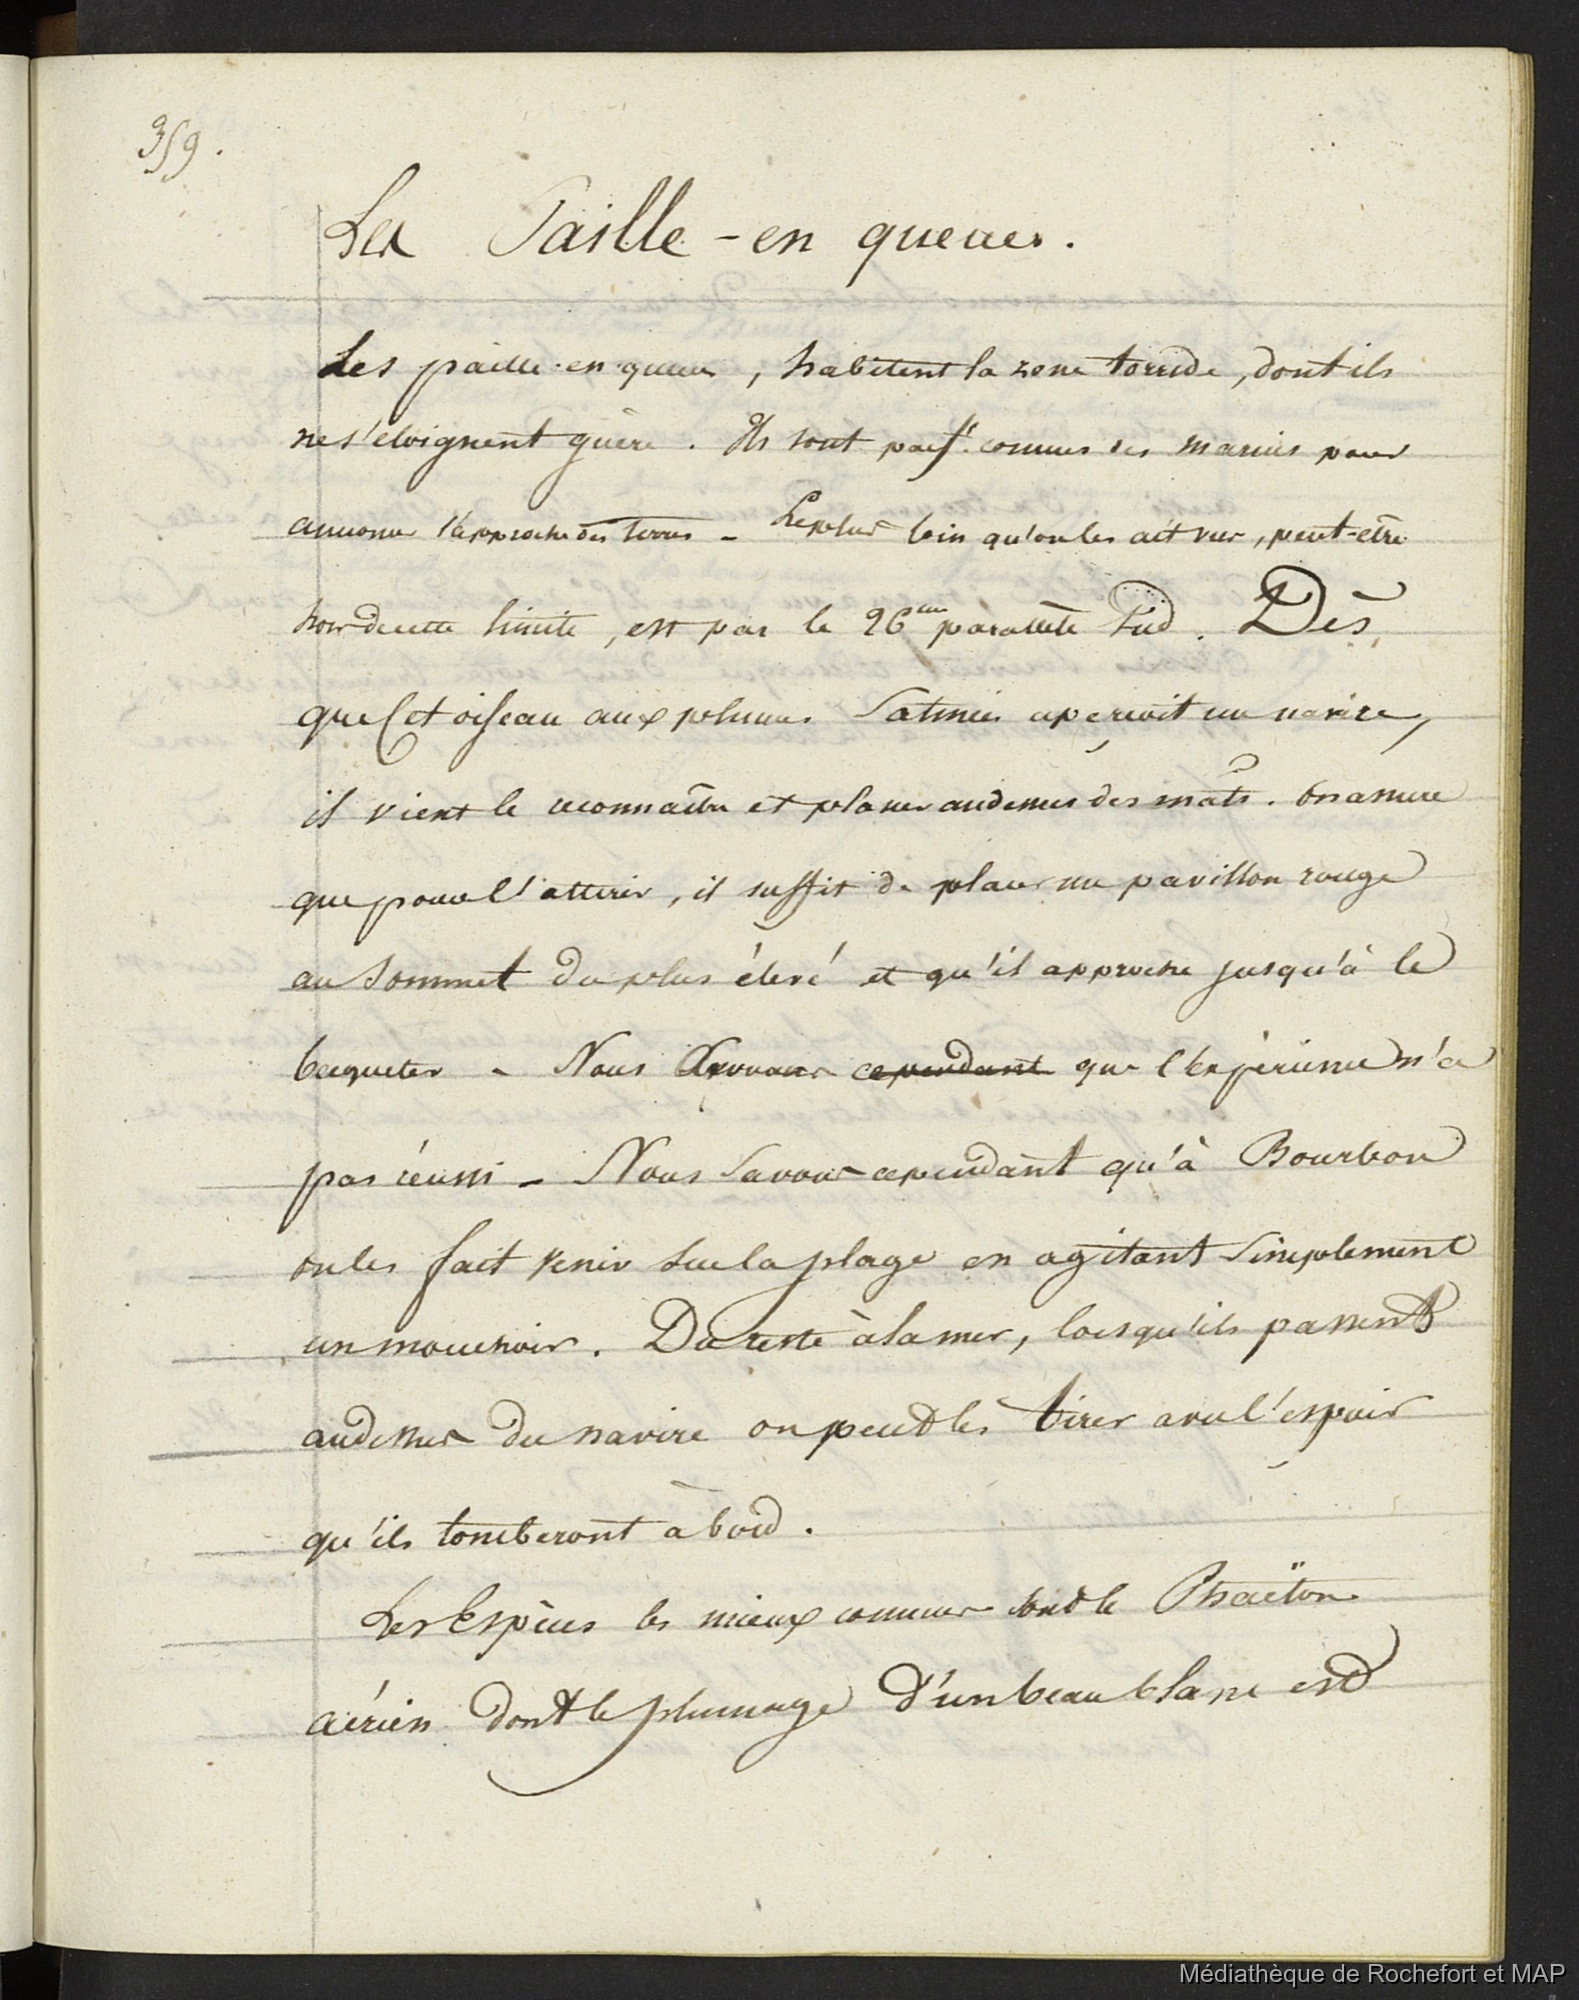 359.
Les Paille-en queues.
Les paille-en-queues, habitent la zone torride, dont ils
ne s'eloignent guère. Ils sont parft. connus des marins pour
annoncer l'approche des terres - Le plus loin qu'on les ait vus, peut-être
hors de cette limite, est par le 26eme parallèle Sud. Dès
que Cet oiseau aux plumes Satinées aperçoit un navire,
il vient le reconnaître et planer audessus des mâts. On assure
que pour l'attirer, il suffit de placer un pavillon rouge
au Sommet du plus élevé et qu'il approche jusqu'à le
becqueter - Nous cependant que l'Expérience n'a
pas réussi - Nous Savons cependant qu'à Bourbon
on les fait venir sur la plage en agitant Simplement
un mouchoir. Du reste à la mer, lorsqu'ils passent
audessus du navire on peut les tirer avec l'espoir
qu'ils tomberont à bord.
Les Espèces les mieux connues sont le Phaëton
aérien dont le plumage d'un beau blanc est
Médiathèque de Rochefort et MAP